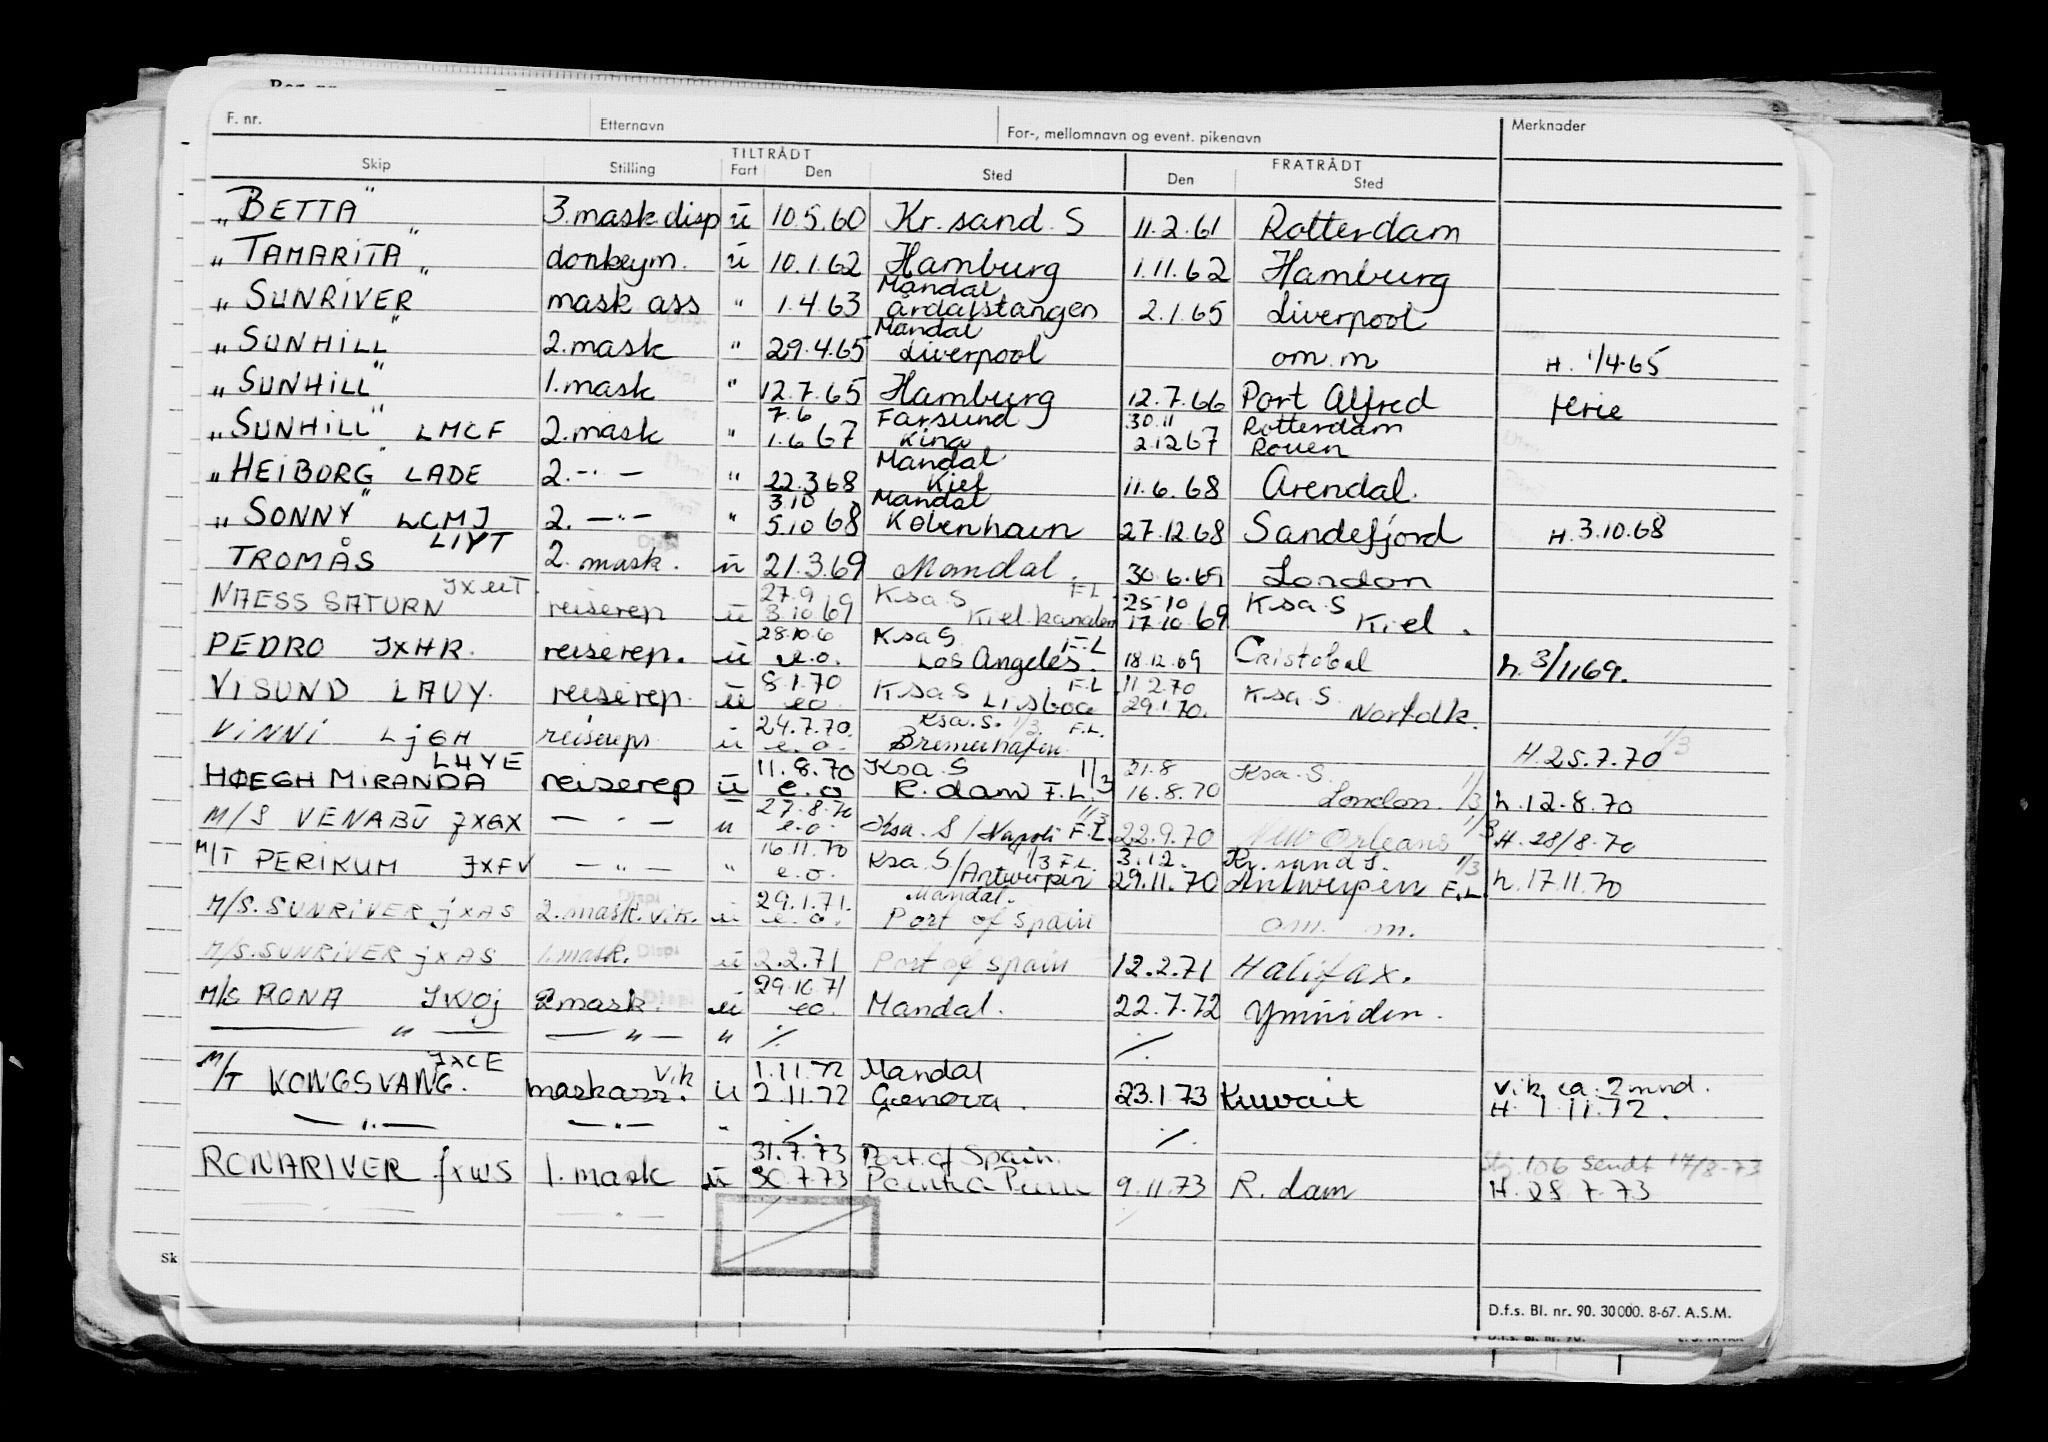 F. nr. Etternavn For-, mellomnavn og event. pikenavn Merknader
Skip Stilling TILTRÅDT Fart Den Sted FRATRÅDT Den Sted
„BETTA" 3. mask disp ū 10.5.60 Kr. sand. S 11.2.61 Rotterdam
„TAMARITA" donkeym. ū 10.1.62 Hamburg 1.11.62 Hamburg
Mandal
„SUNRIVER" mask ass " 1.4.63 Årdalstangen 2.1.65 Liverpool
Mandal
„SUNHILL" 2. mask " 29.4.65 Liverpool om. m H. 1/4-65
„SUNHILL" 1. mask " 12.7.65 Hamburg 12.7.66 Port Alfred ferie
7.6 Farsund 30.11 Rotterdam
„SUNHILL" LMCF 2. mask " 1.6 67 Kina 2.12 67 Rouen
Mandal
„HEIBORG" LADE 2. -"- " 22.3 68 Kiel 11.6.68 Arendal.
3.10 Mandal
„SONNY" LCMJ 2. -"- " 5.10 68 København 27.12.68 Sandefjord H. 3.10.68
LIYT
TROMÅS 2. mask. ū 21.3.69 Mandal. 30.6.69 London
JXUT 27.9 Ksa S F.L 25-10 Ksa. S
NAESS SATURN reiserep ū 3.10 69 Kiel kanalen 17.10.69 Kiel.
28.10.6 Ksa S. F.L
PEDRO JXHR. reiserep. ū e.o. Los Angeles. 18.12.69 Cristobal h. 3/11 69.
8.1.70 Ksa S F.L 11.2.70 Ksa S.
VISUND LAUY. reiserep. ū eo Lisboa 29.1.70. Norfolk.
24.7.70. Ksa. S. 1/3 F.L. 1/3
VINNI LjGH reiserep. ū e.o. Bremerhafen. H. 25.7.70
LHYE 11.8.70 Ksa S 1/3 21.8 Ksa. S.
HØEGH MIRANDA reiserep ū e.o R. dam F.L. 16.8.70 London. 1/3 h. 12.8.70
27.8.70 1/3 1/3
M/S VENABU JXGX - " - " e.o. Ksa. S / Napoli F.L. 22.9.70 New Orleans H. 28/8-70
16.11.70 Ksa S 1/3 F.L. 3.12. Kr. sand S. 1/3
M/T PERIKUM JXFV - " - " e.o. /Antwerpen 29.11.70 Antwerpen F.L. h. 17.11.70
29.1.71. Mandal.
M/S. SUNRIVER jXAS 2. mask. vik. ū e.o. Port of Spain om. m.
M/S. SUNRIVER jXAS 1. mask. ū 2.2.71 Port of Spain 12.2.71 Halifax.
29.10.71
M/S RONA JWOj 2 mask. ū eo. Mandal. 22.7.72 Ymuiden.
— " — — " — " ./. ./.
JXCE Vik 1.11.72 Mandal
M/T KONGSVANG. maskass. ū 2.11.72 Genova. 23.1.73 Kuwait Vik. ca. 2 mnd.
H. 1.11.72.
— " — — " — " ./. ./.
31.7.73 Port of Spain. 106 Sendt 17/8-73
RONARIVER JXWS 1. mask ū 30.7.73 9.11.73 R. dam H. 28.7.73
— " — — " — ./. ./.
Sk
D.f.s. Bl. nr. 90. 30000. 8-67. A.S.M.